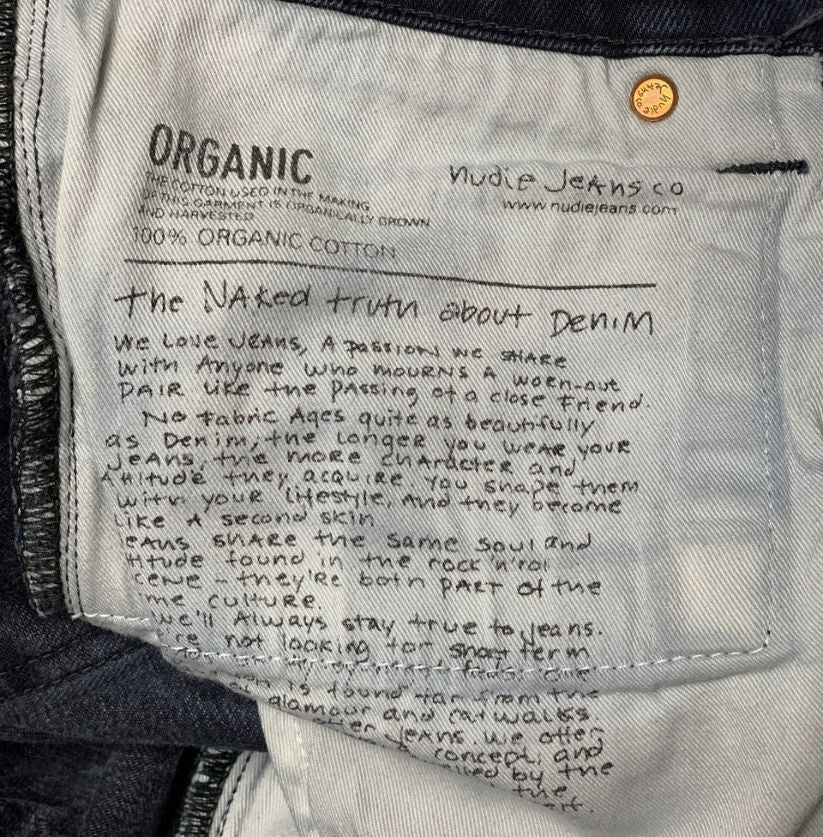 nudie Jeans co
ORGANIC
THE COTTON USED IN THE MAKING
OF THIS GARMENT IS ORGANICALLY GROWN
AND HARVESTED
100% ORGANIC COTTON
nudie Jeans co
www.nudiejeans.com
the NAked truth about Denim
We Love Jeans, A passion we share
with Anyone who mourns A worn-out
pair like the passing of a close friend.
No fabric Ages quite as beautifully
as Denim, the longer you wear your
jeans, the more character and
Attitude they acquire. You shape them
with your lifestyle, And they become
like A second skin
eans share the same soul and
titude found in the rock'n'rol
cene - they're both part of the
me culture.
we'll Always stay true to jeans.
're not looking for short term
fads. Our
on is found far from the
glamour and catwalks.
jeans. We offer
concept, and
by the
the